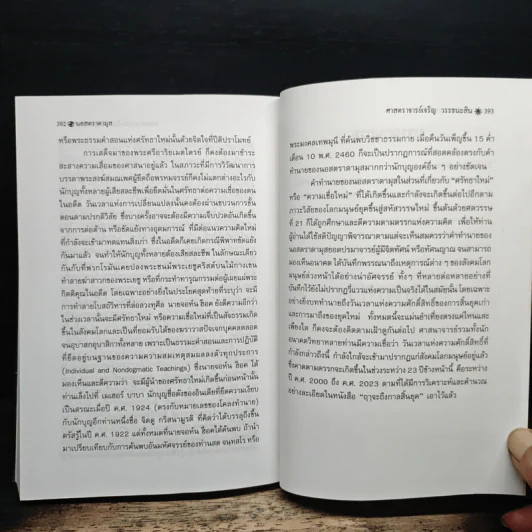 392 นอสตราดามุส
หรือพระธรรมคำสอนแห่งศรัทธาใหม่นั้นด้วยจิตใจที่ปีติปราโมทย์
การเสด็จมาของพระศรีอาริยเมตไตรย์ ก็คงต้องมาชำระ
สะสางความเสื่อมของศาสนาอยู่แล้ว ในสภาวะที่มีการวิวัฒนาการ
บรรดาพระสงฆ์สมณเพศผู้ยึดถือพรหมจรรย์ก็คงไม่แตกต่างอะไรกับ
นักบุญทั้งหลายผู้เสียสละชีพเพื่อยึดมั่นในศรัทธาต่อความเชื่อของตน
ในอดีต วันเวลาแห่งการเปลี่ยนแปลงนั้นคงต้องผ่านขบวนการขั้น
ตอนตามปรกติวิสัย ซึ่งบางครั้งอาจจะต้องมีความเจ็บปวดอันเกิดขึ้น
จากการต่อต้าน หรือขัดแย้งทางอุดมการณ์ ที่มีต่อแนวความคิดใหม่
ที่กำลังจะเข้ามาทดแทนสิ่งเก่า ซึ่งในอดีตก็เคยเกิดกรณีพิพาทขัดแย้ง
กันมาแล้ว จนทำให้นักบุญทั้งหลายต้องเสียสละชีพ ในลักษณะเดียว
กันกับที่พวกโรมันเคยปลงพระชนม์พระเยซูคริสต์บนไม้กางเขน
ทำลายฆ่าสาวกของพระเยซู หรือที่กระทำทารุณกรรมต่อผู้เผยแผ่พระ
กิตติคุณในอดีต โดยเฉพาะอย่างยิ่งในประโยคสุดท้ายที่ระบุว่า จะมี
การทำลายโบสถ์วิหารที่ล่อลวงทุศีล นายจอห์น ฮ็อค ยังตีความอีกว่า
ในช่วงเวลานั้นจะมีศรัทธาใหม่ หรือความเชื่อใหม่ที่เป็นสัจธรรมเกิด
ขึ้นในสังคมโลกและเป็นที่ยอมรับได้ของพราวาสปัจเจกบุคคลตลอด
จนอุบาสกอุบาสิกาทั้งหลาย เพราะเป็นธรรมะคำสอนและการปฏิบัติ
ที่ยึดอยู่บนฐานของความสมเหตุสมผลตรงตัวทุกประการ
(Individual and Nondogmatic Teachings) ซึ่งนายจอห์น ฮ็อค ได้
มองเห็นและตีความว่า จะมีผู้นำของศรัทธาใหม่เกิดขึ้นก่อนหน้านั้น
ท่านเล็งไปที่ เมเฮอร์ บาบา นักบุญชื่อดังของอินเดียที่ยึดความเงียบ
เป็นสรณะเมื่อปี ค.ศ. 1924 (ตรงกับหมายเลขของโคลงทำนาย)
กับนักบุญอีกท่านหนึ่งชื่อ จิตดู กริสนามูรติ ที่คิดว่าได้บรรลุถึงขั้น
ตรัสรู้ในปี ค.ศ. 1922 แต่ทั้งหมดที่นายจอห์น ฮ็อคได้ค้นพบ ถ้านำ
มาเปรียบเทียบกับการค้นพบอันมหัศจรรย์ของท่านสด จนฺทสโร หรือ
ศาสตราจารย์เจริญ วรรธนะสิน 393
พระมงคลเทพมุนี ที่ค้นพบวิชชาธรรมกาย เมื่อคืนวันเพ็ญขึ้น 15 ค่ำ
เดือน 10 พ.ศ. 2460 ก็จะเป็นปรากฏการณ์ที่สอดคล้องตรงกับคำ
ทำนายของนอสตราดามุสมากกว่านักบุญองค์อื่น ๆ อย่างชัดเจน
คำทำนายของนอสตราดามุสในส่วนที่เกี่ยวกับ “ศรัทธาใหม่”
หรือ “ความเชื่อใหม่” ที่ได้เกิดขึ้นและกำลังจะเกิดขึ้นต่อไปอีกตาม
ภาวะวิสัยของโลกมนุษย์ยุคขึ้นสู่สหัสวรรษใหม่ ขึ้นต้นด้วยศตวรรษ
ที่ 21 ก็ได้ถูกศึกษาและตีความตามตรรกแห่งความคิด เพื่อให้ท่าน
ผู้อ่านได้ใช้สติปัญญาพิจารณาตามและจะเห็นสมควรว่าคำทำนายของ
นอสตราดามุสยอดปรมาจารย์ผู้มีจิตทัศน์ หรือทัศนญาณ จนสามารถ
มองเห็นอนาคต ได้บันทึกพรรณนาถึงเหตุการณ์ต่าง ๆ ของสังคมโลก
มนุษย์ล่วงหน้าได้อย่างน่าอัศจรรย์ ทั้ง ๆ ที่หลายต่อหลายอย่างที่
บันทึกไว้ยังไม่ปรากฏวี่แววแห่งความเป็นจริงได้ในสมัยนั้น โดยเฉพาะ
อย่างยิ่งบททำนายถึงวันเวลาแห่งความศักดิ์สิทธิ์ของการสิ้นยุคเก่า
และการมาถึงของยุคใหม่ ทั้งหมดนี้จะแม่นยำเที่ยงตรงแค่ไหนและ
เพียงใด ก็คงจะต้องติดตามเฝ้าดูกันต่อไป ศาสตราจารย์รวมทั้งนัก
อนาคตวิทยาหลายท่านมีความเชื่อว่า วันเวลาแห่งความศักดิ์สิทธิ์ที่
กำลังกล่าวถึงนี้ กำลังใกล้จะเข้ามาปรากฏแก่สังคมโลกมนุษย์อยู่แล้ว
ซึ่งคาดตามตรรกจะเกิดขึ้นในช่วงระหว่าง 23 ปีข้างหน้านี้ คือระหว่าง
ปี ค.ศ. 2000 ถึง ค.ศ. 2023 ตามที่ได้มีการวิเคราะห์และคำนวณ
อย่างละเอียดในหนังสือ “ฤาจะถึงกาลสิ้นยุค” เอาไว้แล้ว